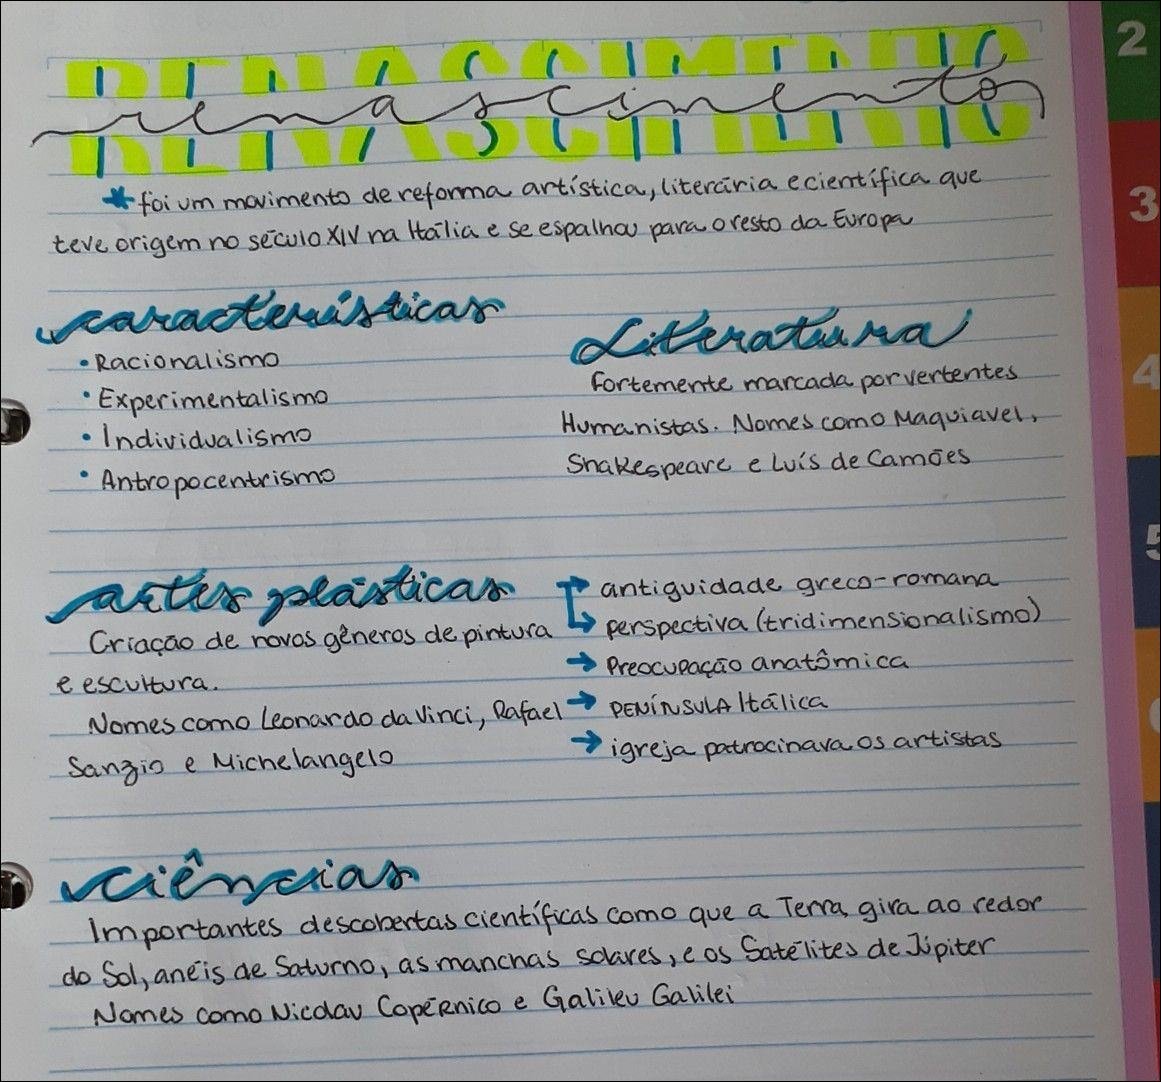 RENASCIMENTO
renascimento
* foi um movimento de reforma artística, literária e científica que
teve origem no século XIV na Itália e se espalhou para o resto da Europa
características
• Racionalismo
• Experimentalismo
• Individualismo
• Antropocentrismo
Literatura
Fortemente marcada por vertentes
Humanistas. Nomes como Maquiavel,
Shakespeare e Luís de Camões
artes plásticas
Criação de novos gêneros de pintura
e escultura.
Nomes como Leonardo da Vinci, Rafael
Sanzio e Michelangelo
→ antiguidade greco-romana
→ perspectiva (tridimensionalismo)
→ Preocupação anatômica
→ PENÍNSULA Itálica
→ igreja patrocinava os artistas
ciências
Importantes descobertas científicas como que a Terra gira ao redor
do Sol, anéis de Saturno, as manchas solares, e os Satélites de Júpiter
Nomes como Nicolau Copérnico e Galileu Galilei
2
3
4
5